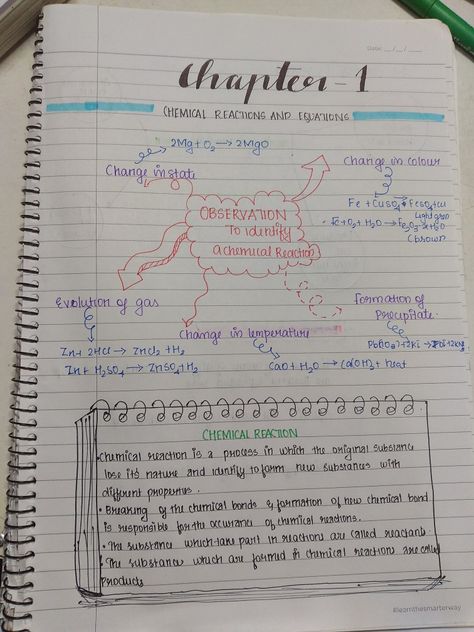 Date: __/__/__
Chapter-1
CHEMICAL REACTIONS AND EQUATIONS
2Mg + O₂ → 2MgO
Change in state
Change in colour
OBSERVATION
To identify
a chemical Reaction
Fe + CuSO₄ → FeSO₄ + Cu
Light green
Fe + O₂ + H₂O → Fe₂O₃·xH₂O
(brown)
Evolution of gas
Zn + 2HCl → ZnCl₂ + H₂
Zn + H₂SO₄ → ZnSO₄ + H₂
Change in temperature
CaO + H₂O → Ca(OH)₂ + heat
Formation of
Precipitate.
CHEMICAL REACTION
• Chemical reaction is a process in which the original substance
lose its nature and identify to form new substances with
different properties.
• Breaking of the chemical bonds & formation of new chemical bond
is responsible for the occurance of chemical reactions.
• The substance which take part in reactions are called reactant.
• The substance which are formed in chemical reaction are called
products
#learnthesmarterway